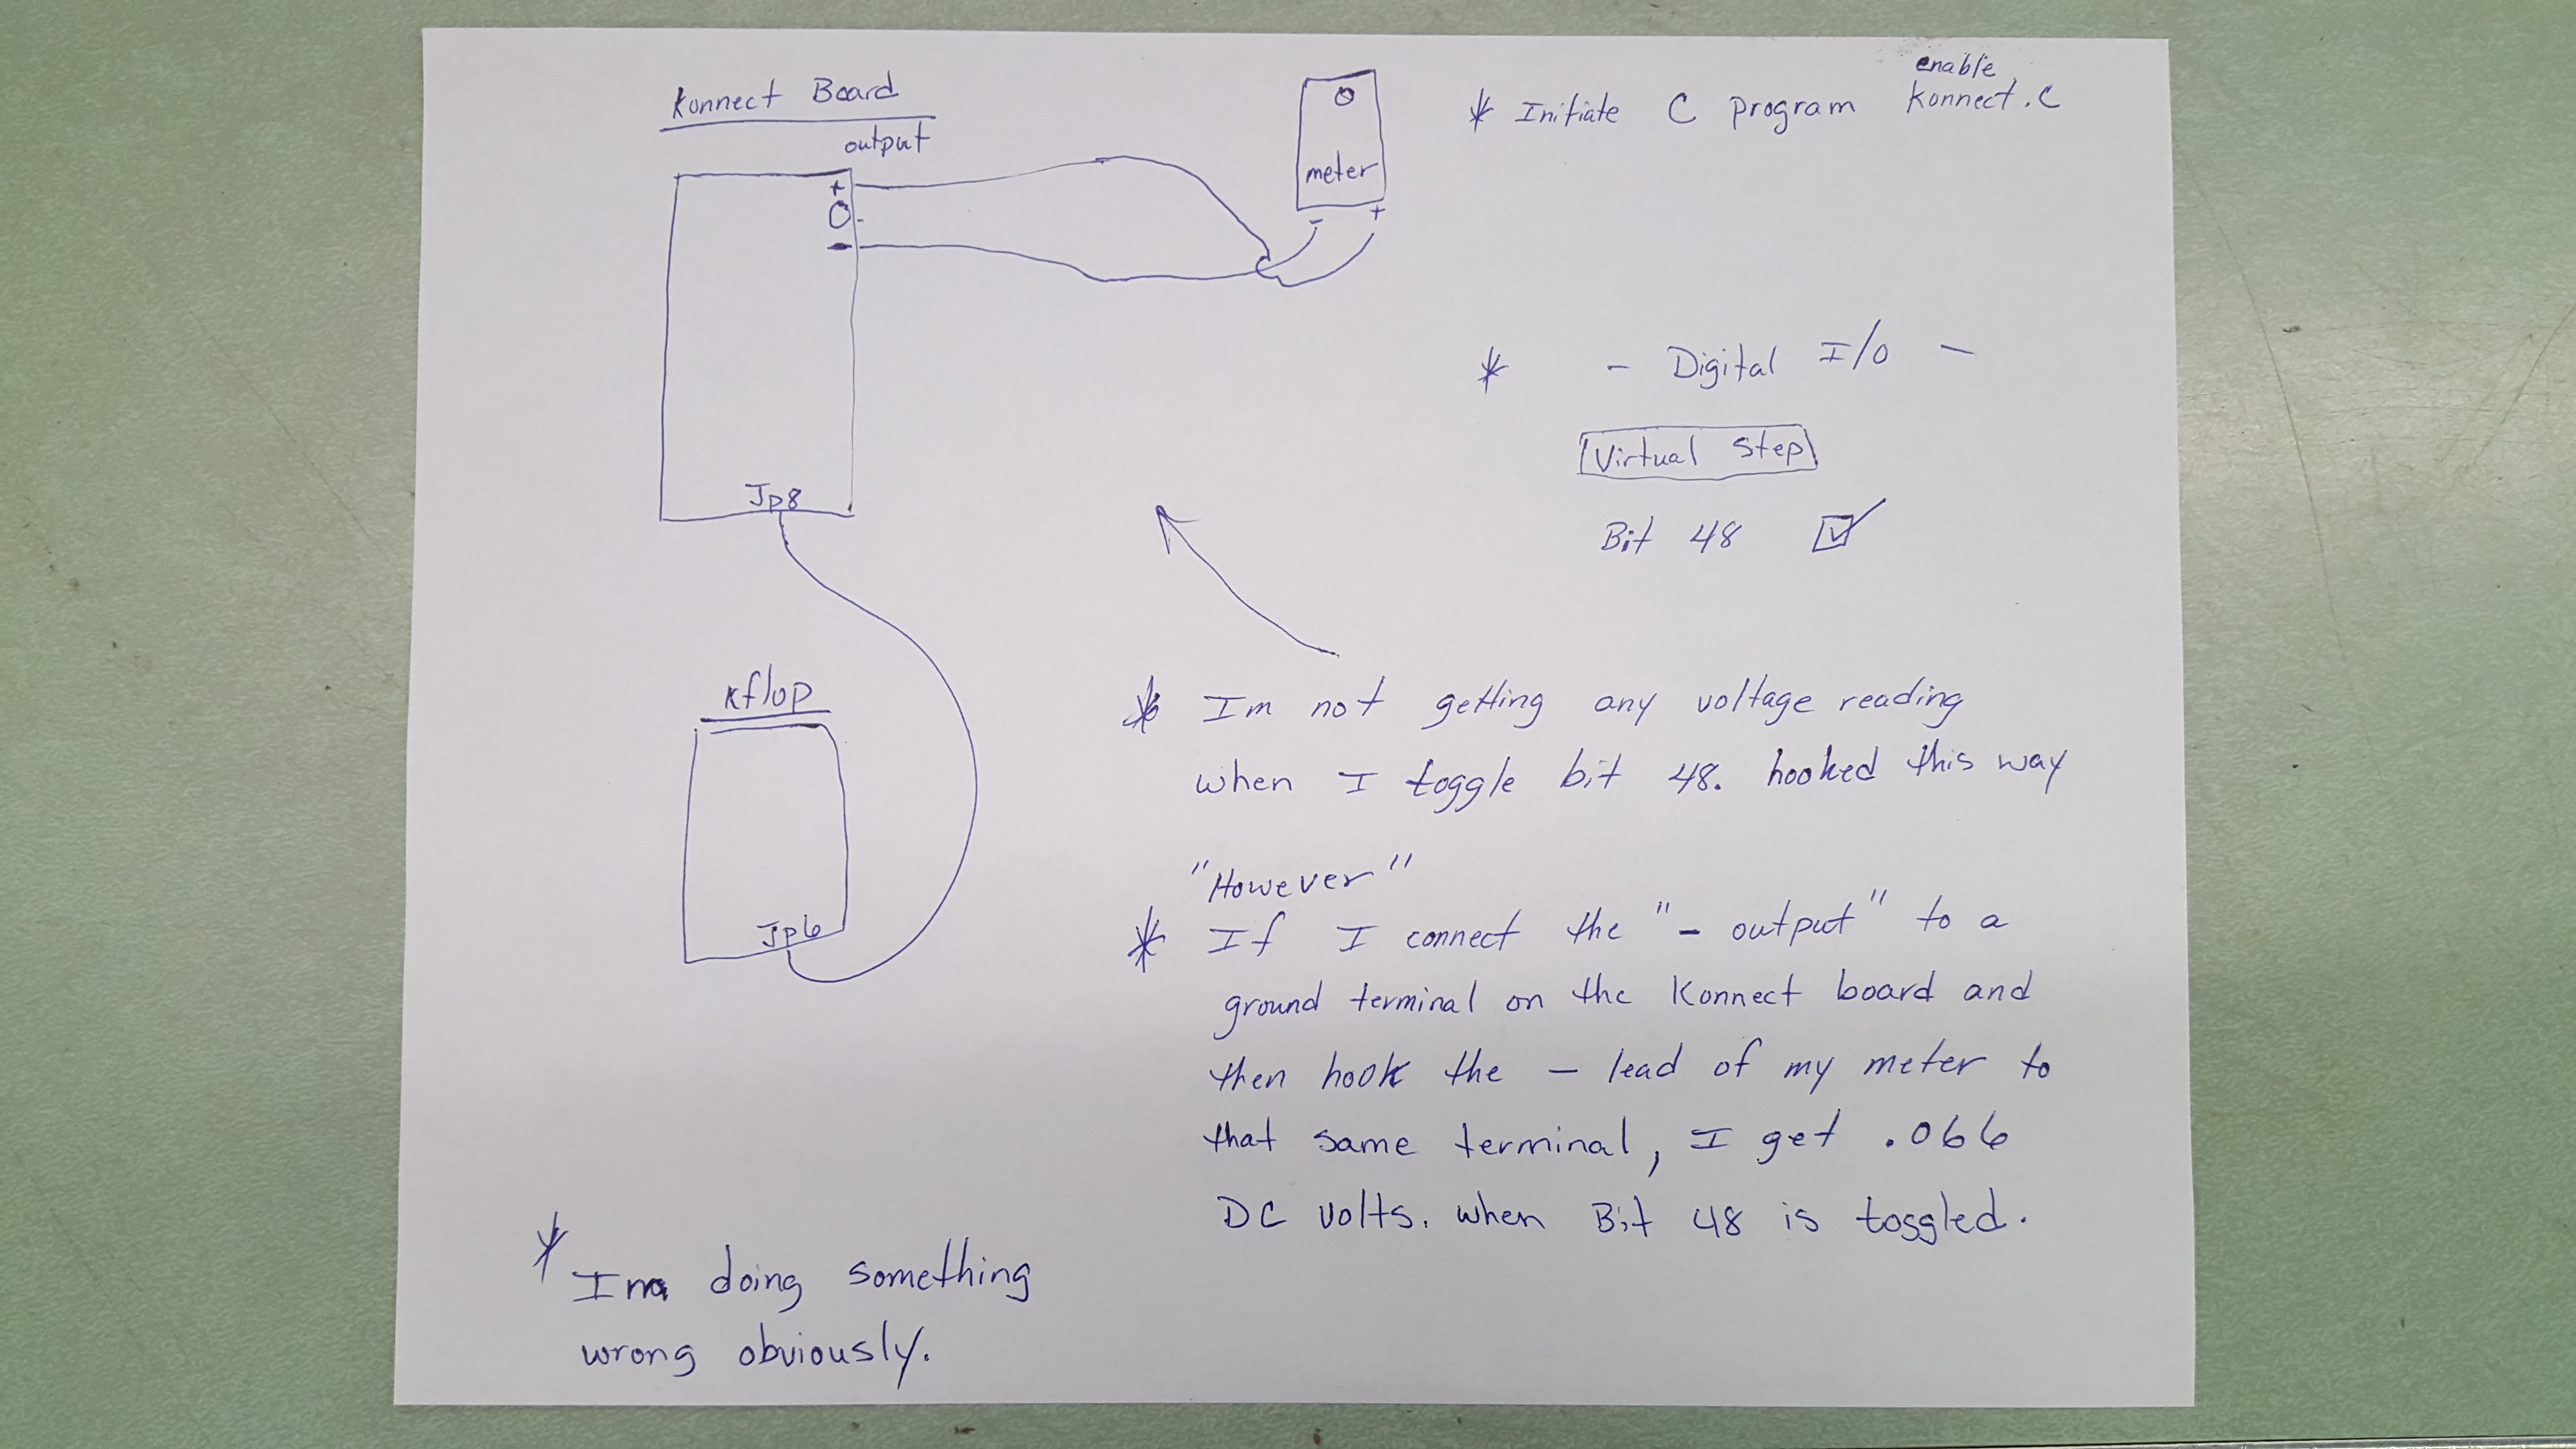 Konnect Board
output
+
0
-
-
Jp8
meter
- +
kflop
Jp6
* Initiate C program enable Konnect.C
* - Digital I/O -
Virtual Step
Bit 48
* Im not getting any voltage reading
when I toggle bit 48. hooked this way
"However"
* If I connect the "- output" to a
ground terminal on the Konnect board and
then hook the - lead of my meter to
that same terminal, I get .066
DC volts. when Bit 48 is toggled.
* Im doing something
wrong obviously.